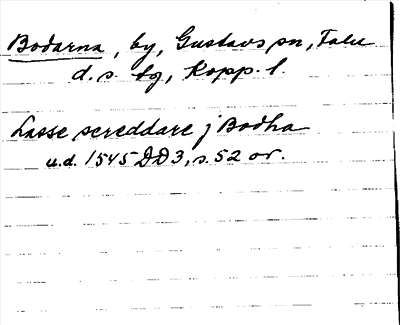 Bodarna, by, Gustavs sn, Falu
d.s. tg, Kopp. l.
Lasse screddare j Bodha
u.d. 1545 DD3, s. 52 or.